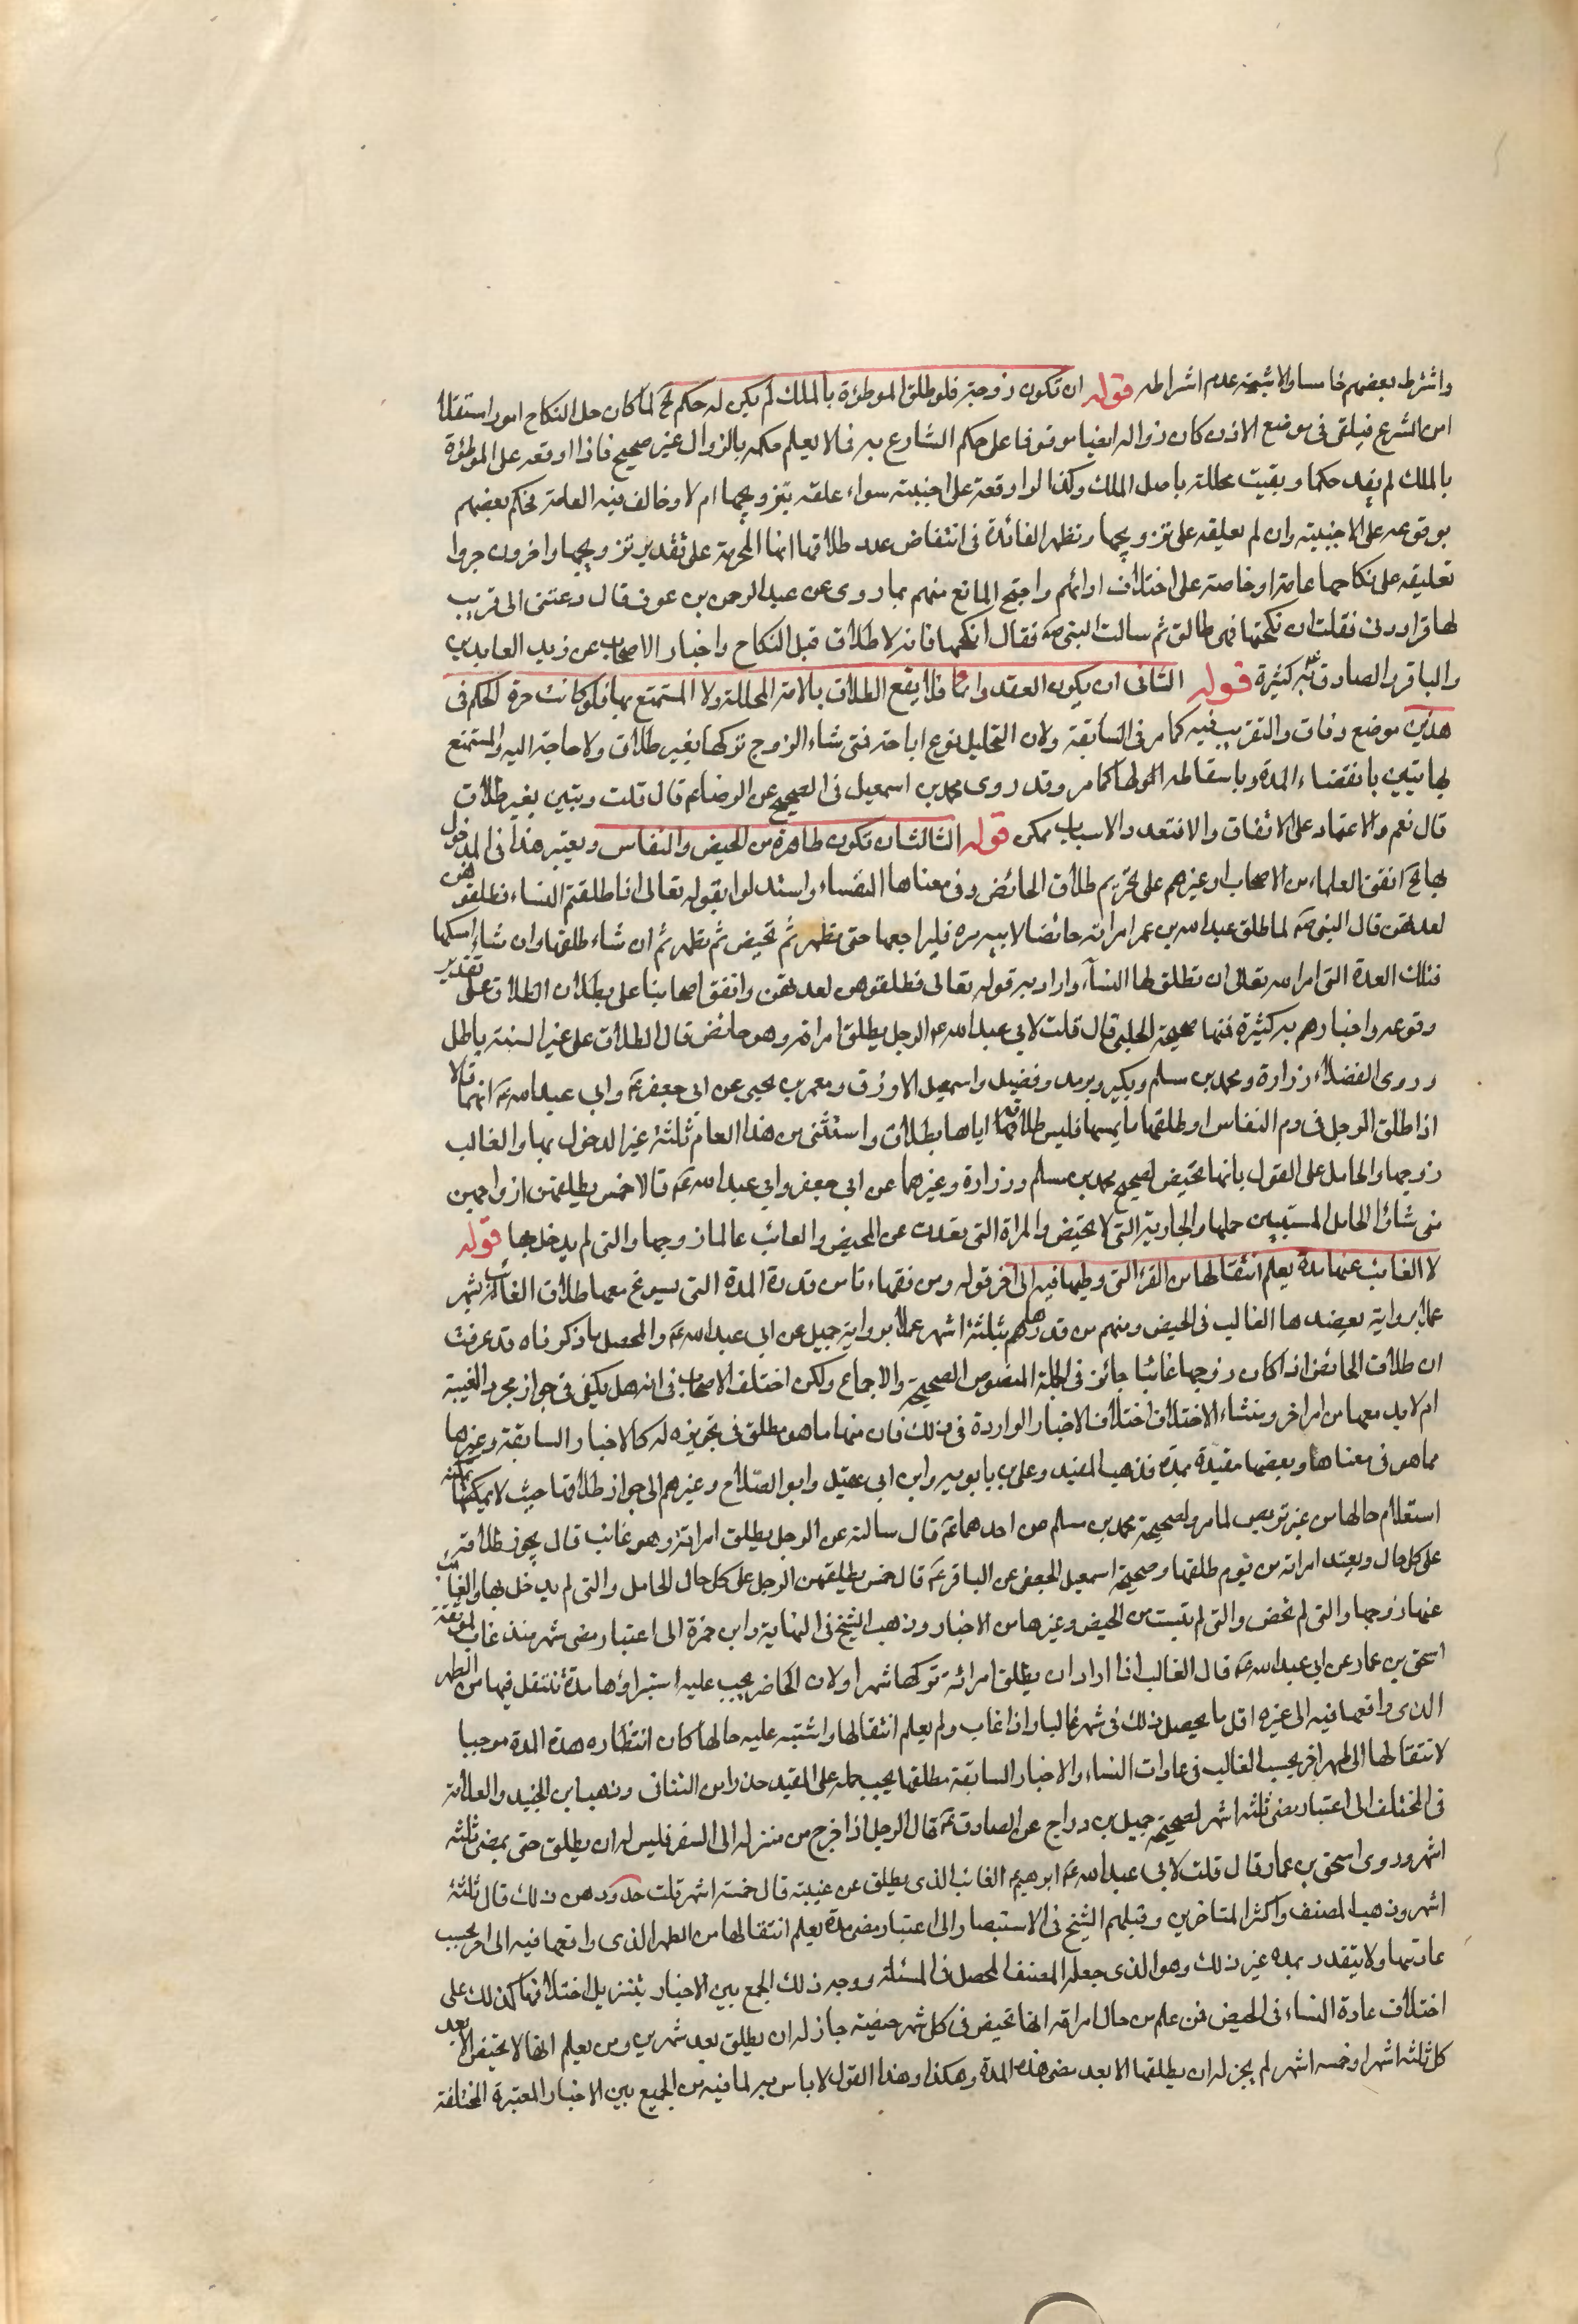 واشترطه بعضهم خامسا والاشبه عدم اشراطه قوله ان تكون زوجته فلو طلق الموطؤة بالملك لم يكن له حكم الخ لما كان حل النكاح امرا
من الشرع فيلقى في موضع الاذن كان زواله ايضا موقوفا على حكم الشارع به فما لا يعلم حكمه بالزوال غير صحيح فاذا اوقعه على الموطؤة
بالملك لم يفد حكما وبقيت محللة باصل الملك وكذا لو اوقعه على اجنبيته سواء علقه بتزويجها ام لا وخالف فيه العامة فحكم بعضهم
بوقوعه على الاجنبية وان لم يعلقه على تزويجها وتظهر الفائدة في انتقاض عدد طلاقها انها المحرمة على تقدير تزويجها واخرون جروا
تعليقه على نكاحها عامة او خاصة على اختلاف ارائهم واحتج المانع منهم بما روى عن عبد الرحمن بن عوف قال دعتنى الى قريب
لها فراودنى فقلت ان نكحتها فهى طالق ثم سالت النبى ص فقال انكحها فانه لا طلاق قبل النكاح واخبار الاصحاب عن زين العابدين
والباقر والصادق كثيرة قوله الثانى ان يكون العقد دائما فلا يقع الطلاق بالامة المحللة ولا المستمتع بها ولو كانت حرة الحكم فى
هذين موضع وفاق والتقريب فيه كما مر فى السابقة ولان التحليل نوع اباحة فمتى شاء الزوج تركها بغير طلاق ولا حاجة اليه والمستمتع
بها تبين بانقضاء المدة وباسقاطه لها كما مر وقد روى محمد بن اسمعيل فى الصحيح عن الرضا ع قال قلت وتبين بغير طلاق
قال نعم والاعتماد على الاتفاق والا فتعدد الاسباب ممكن قوله الثالث ان تكون طاهرة من الحيض والنفاس ويعتبر هذا فى المدخول
بها الخ اتفق العلماء من الاصحاب وغيرهم على تحريم طلاق الحائض وفى معناها النفساء واستدلوا بقوله تعالى اذا طلقتم النساء فطلقوهن
لعدتهن قال النبى ص لما طلق عبد الله بن عمر امراته حائضا لابيه مره فليراجعها حتى تطهر ثم تحيض ثم تطهر ثم ان شاء طلقها وان شاء امسكها
فتلك العدة التى امر الله تعالى ان تطلق لها النساء واراد به قوله تعالى فطلقوهن لعدتهن واتفق اصحابنا على بطلان الطلاق على تقدير
وقوعه واخبارهم به كثيرة فمنها صحيحة الحلبى قال قلت لابى عبد الله ع الرجل يطلق امراته وهو حائض قال الطلاق على غير السنة باطل
وروى الفضلاء زرارة ومحمد بن مسلم وبكير وبريد وفضيل واسمعيل الازرق ومعمر بن يحيى عن ابى جعفر ع وابى عبد الله ع انهما قالا
اذا طلق الرجل فى دم النفاس او طلقها بعد ما يمسها فليس طلاقه اياها بطلاق واستثنى من هذا العام ثلثة غير المدخول بها والغائب
زوجها والحامل على القول بانها تحيض لصحيح محمد بن مسلم وزرارة وغيرهما عن ابى جعفر وابى عبد الله ع قالا خمس يطلقهن ازواجهن
متى شاؤا الحامل المستبين حملها والجارية التى لا تحيض والمراة التى قعدت عن المحيض والغائب عنها زوجها والتى لم يدخل بها قوله
لا الغائب عنها مدة يعلم انتقالها من القرء التى وطيها فيه الى اخر قوله ومن فقهاءنا من قدر المدة التى يسوغ معها طلاق الغائب بشهر
عملا برواية يعضدها الغالب فى الحيض ومنهم من قدرها بثلثة اشهر عملا برواية جميل عن ابى عبد الله ع والمحصل ما ذكرناه قد عرفت
ان طلاق الحائض اذا كان زوجها غائبا جائز فى الجملة النصوص الصحيحة والاجماع ولكن اختلف الاصحاب فى انه هل يكفى فى جوازه مجرد الغيبة
ام لا بد معها من امر اخر ومنشاء الاختلاف اختلاف الاخبار الواردة فى ذلك فان منها ما هو مطلق فى تجويزه له كالاخبار السابقة وغيرها
مما هو فى معناها وبعضها مقيدة بمدة فذهب المفيد وعلى بن بابويه وابن ابى عقيل وابو الصلاح وغيرهم الى جواز طلاقها حيث لا يمكنه
استعلام حالها من غير تربص لما مر ولصحيحة محمد بن مسلم عن احدهما ع قال سالته عن الرجل يطلق امراته وهو غائب قال يجوز طلاقه
على كل حال ويعتد امراته من يوم طلقها وصحيحة اسمعيل الجعفى عن الباقر ع قال خمس يطلقهن الرجل على كل حال الحامل والتى لم يدخل بها والغائب
عنها زوجها والتى لم تحض والتى يئست من الحيض وغيرها من الاخبار وذهب الشيخ فى النهاية وابن حمزة الى اعتبار مضى شهر منذ غاب لموثقة
اسحق بن عمار عن ابى عبد الله ع قال الغائب اذا اراد ان يطلق امراته تركها شهرا ولان الحاضر يجب عليه استبراؤها مدة تنتقل فيها من الطهر
الذى واقعها فيه الى غيره اقل ما يحصل ذلك فى شهر غالبا واذا غاب ولم يعلم انتقالها واشتبه عليه حالها كان انتظاره هذه المدة موجبا
لانتقالها الى طهر اخر بحسب الغالب فى عادات النساء والاخبار السابقة مطلقها يجب حمله على المقيد حذرا من التنافى وذهب ابن الجنيد والعلامة
فى المختلف الى اعتبار مضى ثلثة اشهر لصحيحة جميل بن دراج عن الصادق ع قال الرجل اذا خرج من منزله الى السفر فليس له ان يطلق حتى يمضى ثلثة
اشهر وروى اسحق بن عمار قال قلت لابى عبد الله ع ابرهيم الغائب الذى يطلق عن غيبته قال خمسة اشهر قلت حد دون ذلك قال ثلثة
اشهر وذهب المصنف واكثر المتاخرين وقبلهم الشيخ فى الاستبصار الى اعتبار مضى مدة يعلم انتقالها من الطهر الذى واقعها فيه الى اخر بحسب
عادتها ولا يتقدر بمدة غير ذلك وهو الذى جعله المصنف المحصل فى المسئلة ووجه ذلك الجمع بين الاخبار بتنزيل اختلافها كذلك على
اختلاف عادة النساء فى الحيض فمن علم من حال امراته انها تحيض فى كل شهر حيضة جاز له ان يطلق بعد شهرين ومن يعلم انها لا تحيض الا بعد
كل ثلثة اشهر او خمسة اشهر لم يجز له ان يطلقها الا بعد مضى هذه المدة وهكذا وهذا القول لا باس به لما فيه من الجمع بين الاخبار المعتبرة المختلفة